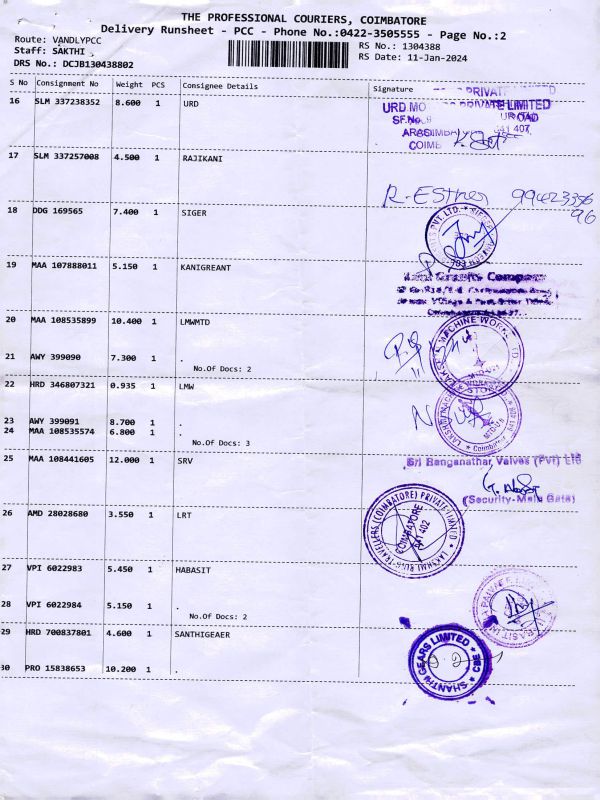 THE PROFESSIONAL COURIERS, COIMBATORE
Delivery Runsheet - PCC - Phone No.:0422-3505555 - Page No.:2
Route: VANDLYPCC
Staff: SAKTHI
DRS No.: DCJB130438802
RS No.: 1304388
RS Date: 11-Jan-2024
S No Consignment No Weight PCS Consignee Details Signature
16 SLM 337238352 8.600 1 URD
PRIVATE LIMITED
URD PRIVATE LIMITED
SF.No.
COIMB 641 407
17 SLM 337257008 4.500 1 RAJIKANI
R. Esther
18 DDG 169565 7.400 1 SIGER
PVT. LTD.
19 MAA 107888011 5.150 1 KANIGREANT
Company
20 MAA 108535899 10.400 1 LMWMTD
MACHINE WORKS LTD
21 AWY 399090 7.300 1 .
No.Of Docs: 2
22 HRD 346807321 0.935 1 LMW
23 AWY 399091 8.700 1 .
24 MAA 108535574 6.800 1 .
No.Of Docs: 3
Coimbatore
25 MAA 108441605 12.000 1 SRV
Sri Ranganathar Valves (Pvt) Ltd
(Security-Main Gate)
26 AMD 28028680 3.550 1 LRT
TRAVELLERS (COIMBATORE) PRIVATE LIMITED
COIMBATORE
641 402
27 VPI 6022983 5.450 1 HABASIT
28 VPI 6022984 5.150 1 .
No.Of Docs: 2
29 HRD 700837801 4.600 1 SANTHIGEAER
SHANTHI GEARS LIMITED
CBE
30 PRO 15838653 10.200 1 .